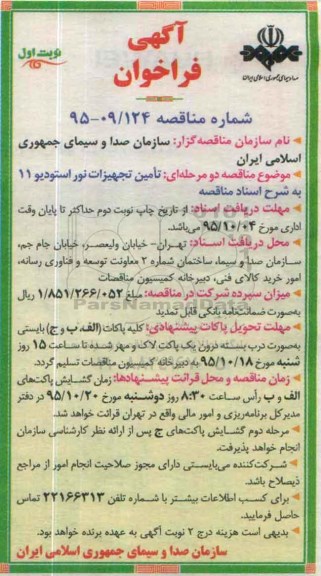 آگهی
فراخوان
نوبت اول
صدا و سیمای جمهوری اسلامی ایران
شماره مناقصه ۹۵-۰۹/۱۲۴
نام سازمان مناقصه‌گزار: سازمان صدا و سیمای جمهوری
اسلامی ایران
موضوع مناقصه دو مرحله‌ای: تأمین تجهیزات نور استودیو ۱۱
به شرح اسناد مناقصه
مهلت دریافت اسناد: از تاریخ چاپ نوبت دوم حداکثر تا پایان وقت
اداری مورخ ۹۵/۱۰/۰۴ می‌باشد.
محل دریافت اسناد: تهران- خیابان ولیعصر، خیابان جام جم،
سازمان صدا و سیما، ساختمان شماره ۲ معاونت توسعه و فناوری رسانه،
امور خرید کالای فنی، دبیرخانه کمیسیون مناقصات
میزان سپرده شرکت در مناقصه: مبلغ ۱/۸۵۱/۲۶۶/۰۵۲ ریال
به‌صورت ضمانت‌نامه بانکی قابل تمدید
ParsNamadData
مهلت تحویل پاکات پیشنهادی: کلیه پاکات (الف، ب و ج) بایستی
به‌صورت درب بسته درون یک پاکت لاک و مهر شده تا ساعت ۱۵ روز
شنبه مورخ ۹۵/۱۰/۱۸ به دبیرخانه کمیسیون مناقصات تسلیم گردد.
زمان مناقصه و محل قرائت پیشنهادها: زمان گشایش پاکت‌های
الف و ب رأس ساعت ۸:۳۰ روز دوشنبه مورخ ۹۵/۱۰/۲۰ در دفتر
مدیرکل برنامه‌ریزی و امور مالی واقع در تهران قرائت خواهد شد.
مرحله دوم گشایش پاکت‌های ج پس از ارائه نظر کارشناسی سازمان
انجام خواهد پذیرفت.
شرکت‌کننده می‌بایستی دارای مجوز صلاحیت انجام امور از مراجع
ذیصلاح باشد.
برای کسب اطلاعات بیشتر با شماره تلفن ۲۲۱۶۶۳۱۳ تماس
حاصل فرمایید.
بدیهی است هزینه درج ۲ نوبت آگهی به عهده برنده خواهد بود.
سازمان صدا و سیمای جمهوری اسلامی ایران